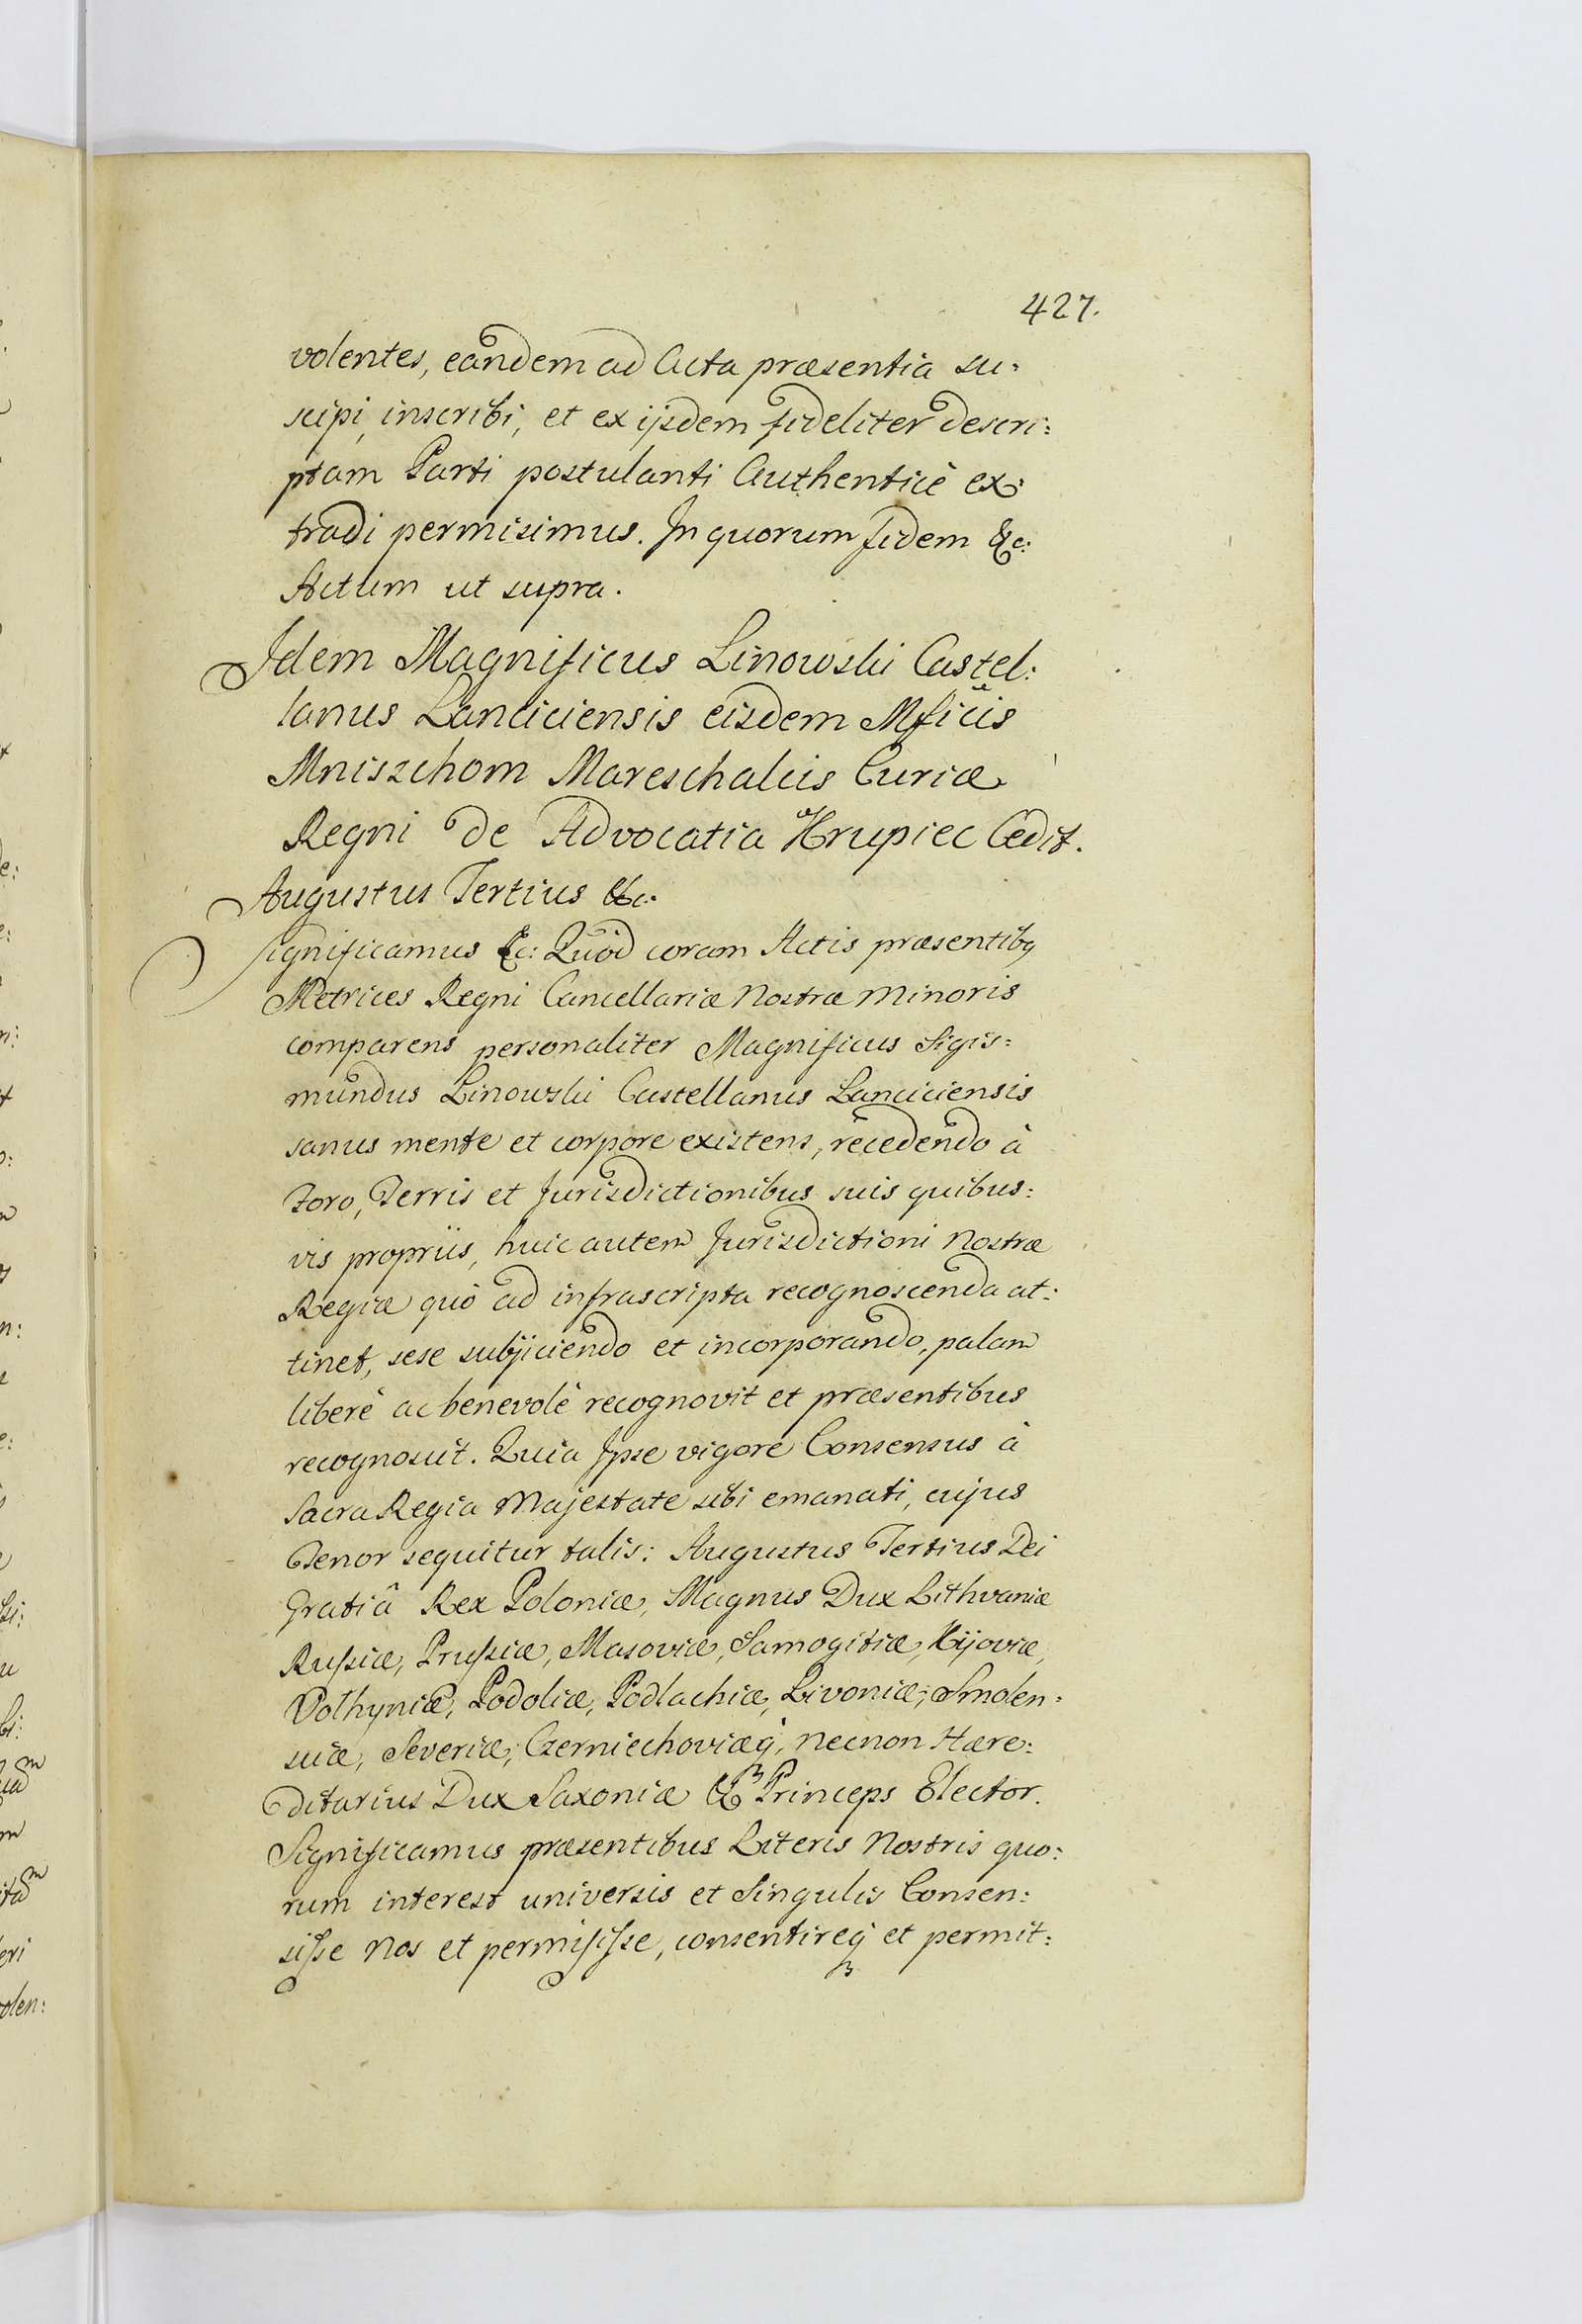 427.
volentes, eandem ad Acta præsentia su:
scipi, inscribi, et ex ijsdem fideliter descri:
ptam Parti postulanti Authenticè ex:
tradi permisimus. In quorum fidem &c:
Actum ut supra.
Idem Magnificus Linowski Castel:
lanus Lanciciensis eisdem Mficis
Mniszchom Mareschalcis Curiæ
Regni de Advocatia Krupiec Cedit.
Augustus Tertius &c:
Significamus &c: Quòd coram Actis præsentibq
Metrices Regni Cancellariæ Nostræ Minoris
comparens personaliter Magnificus Sigis:
mundus Linowski Castellanus Lanciciensis
sanus mente et corpore existens, recedendo à
Foro, Terris et Jurisdictionibus suis quibus:
vis propriis, huic autem Jurisdictioni Nostræ
Regiæ quò ad infrascripta recognoscenda at:
tinet, sese subjiciendo et incorporando, palam
liberè ac benevolè recognovit et præsentibus
recognoscit. Quia Ipse vigore Consensus à
Sacra Regia Majestate sibi emanati, cujus
Tenor sequitur talis: Augustus Tertius Dei
Gratiâ Rex Poloniæ, Magnus Dux Lithvaniæ
Russiæ, Prussiæ, Masoviæ, Samogitiæ, Kijoviæ,
Volhyniæ, Podoliæ, Podlachiæ, Livoniæ, Smolen:
sciæ, Severiæ, Czerniechoviæq, necnon Hære:
ditarius Dux Saxoniæ & Princeps Elector.
Significamus præsentibus Literis Nostris quo:
rum interest universis et Singulis Consen:
sisse Nos et permisisse, consentireq et permit: